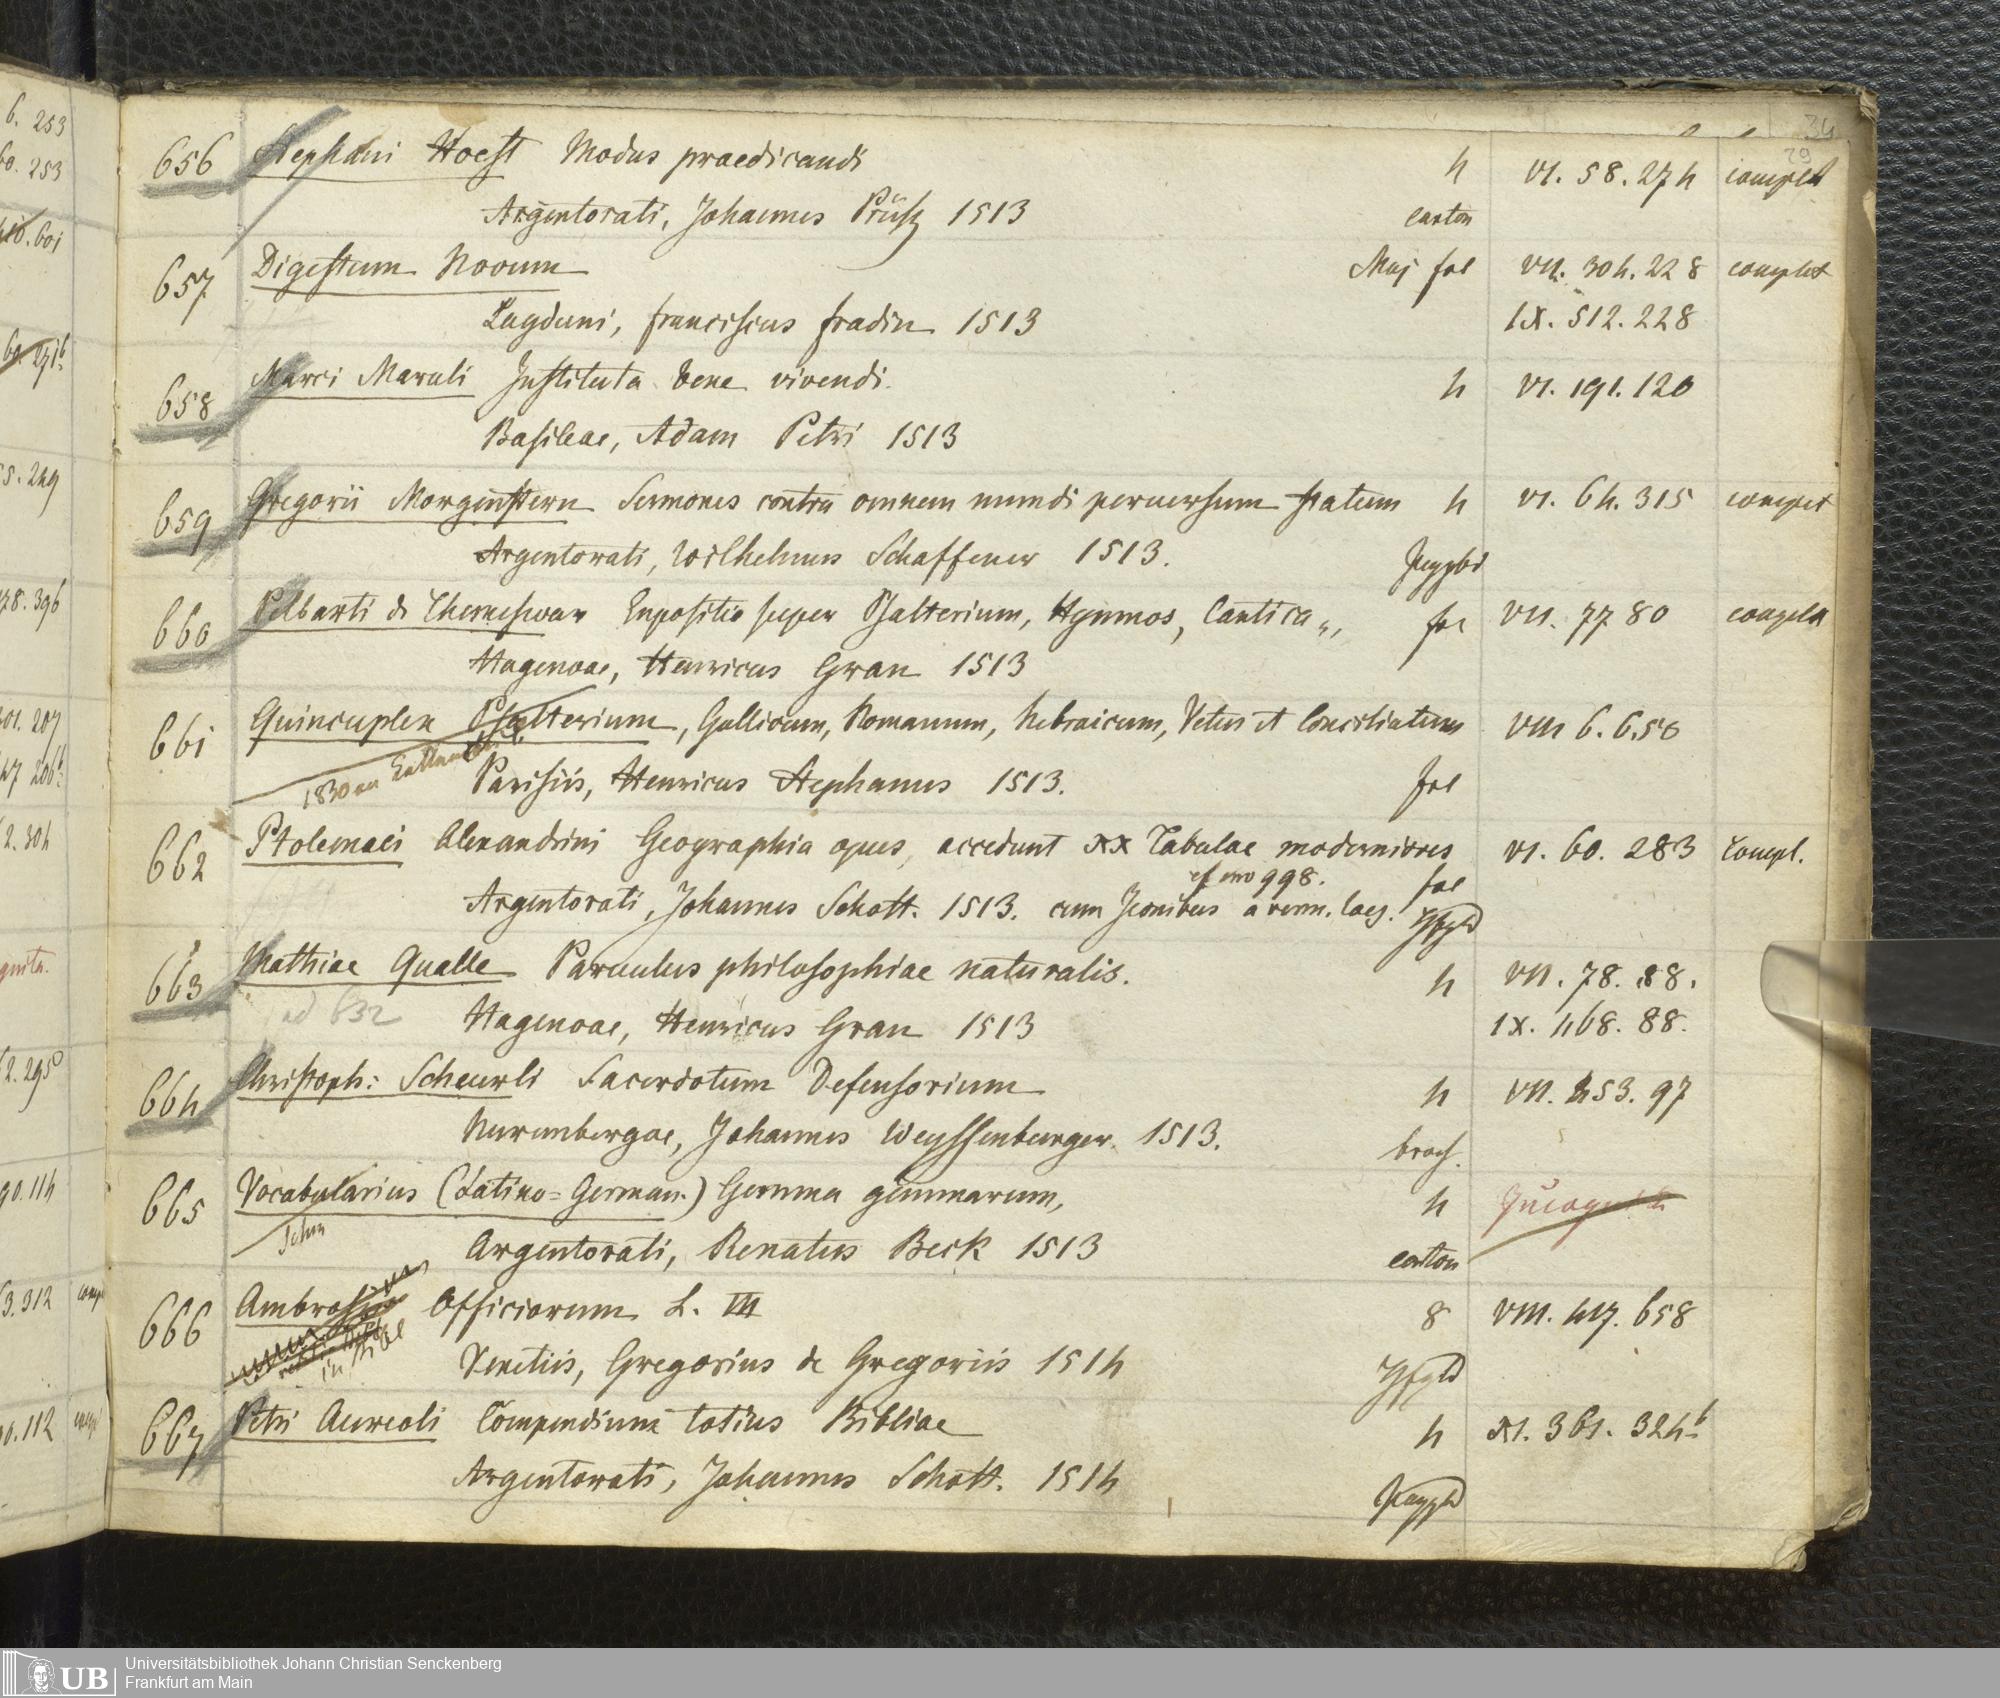 6. 253
60. 253
601
60. 271b
5. 249
78. 396
301. 207
47 206b
2. 304
gnita.
62. 295
90. 114
63. 312 comp
0. 112 comp
34
29
656 Stephani Hoest Modus praedicandi 4 VI. 58. 274 complet
Argentorati, Johannes Prüsz 1513 carton
657 Digestum Novum Maj fol VII. 304. 228 complet
Lugduni, franciscus fradin 1513 IX. 512. 228
658 Marci Maruli Instituta bene vivendi. 4 VI. 191. 120
Basileae, Adam Petri 1513
659 Gregorii Morgenstern Sermones contra omnem mundi peruersum statum 4 VI. 64. 315 complet
Argentorati, Wilhelmus Schaffener 1513.
660 Pelbarti de Themeswar Expositio super Psalterium, Hymnos, Cantica fol VII. 77 80 complet
Hagenoae, Henricus Gran 1513
661 Quincuplex Psalterium, Gallicum, Romanum, hebraicum, Vetus et Conciliatum VIII 6. 658
1830 an
Parisiis, Henricus Stephanus 1513. fol
662 Ptolemaei Alexandrini Geographia opus, accedunt XX Tabulae moderniores VI. 60. 283 Compl.
cf no 998.
Argentorati, Johannes Schott. 1513. cum Iconibus a verm. laes. fol
663 Mathiae Qualle Paruulus philosophiae naturalis. 4 VII. 78. 88.
ad 632
Hagenoae, Henricus Gran 1513 IX. 468. 88.
664 Christoph: Scheurli Sacerdotum Defensorium 4 VII. 453. 97
Nurembergae, Johannes Weyssenburger. 1513. broch.
665 Vocabularius (Latino=German.) Gemma gemmarum, 4 Incognita
Argentorati, Renatus Beck 1513 carton
666 Ambrosius Officiorum L. III 8 VIII. 417. 658
Venetiis, Gregorius de Gregoriis 1514
667 Petri Aureoli Compendium totius Bibliae 4 XI. 361. 324b
Argentorati, Johannes Schott. 1514
UB Universitätsbibliothek Johann Christian Senckenberg
Frankfurt am Main